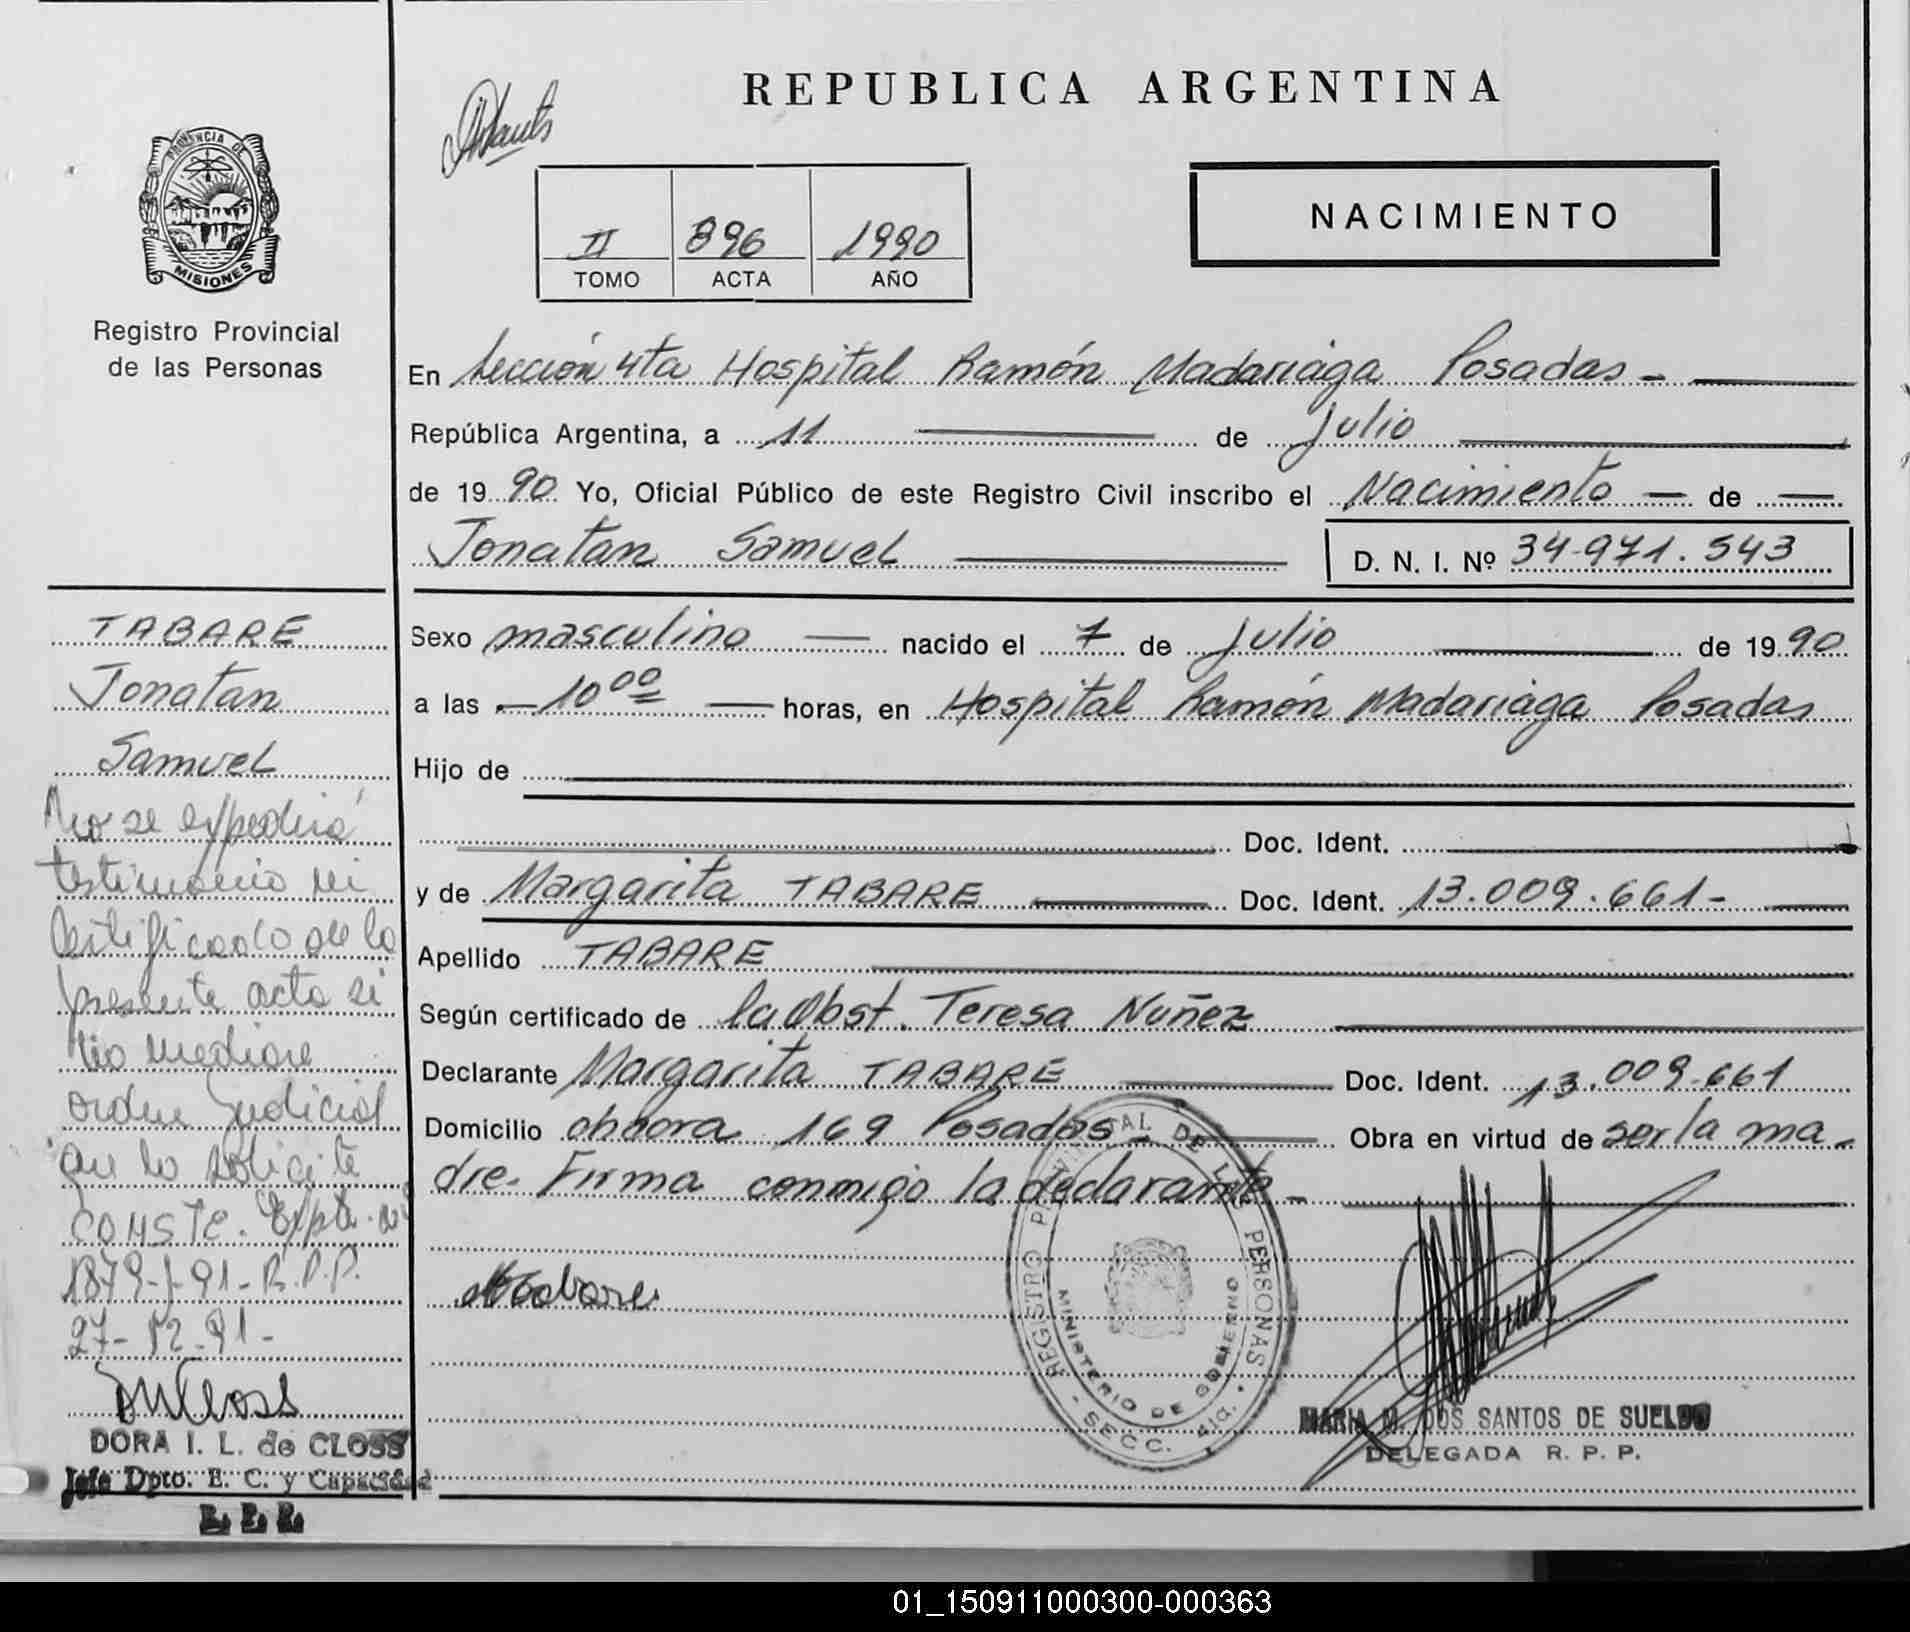 REPUBLICA ARGENTINA
PROVINCIA DE
MISIONES
Registro Provincial
de las Personas
II 896 1990
TOMO ACTA AÑO
NACIMIENTO
En Sección 4ta Hospital Ramón Madariaga Posadas -
República Argentina, a 11 de Julio
de 1990 Yo, Oficial Público de este Registro Civil inscribo el Nacimiento de
Jonatan Samuel D. N. I. Nº 34.971.543
Sexo masculino nacido el 7 de Julio de 1990
a las 10 00 horas, en Hospital Ramón Madariaga Posadas
Hijo de
Doc. Ident.
y de Margarita TABARE Doc. Ident. 13.009.661-
Apellido TABARE
Según certificado de la Obst. Teresa Nuñez
Declarante Margarita TABARE Doc. Ident. 13.009.661
Domicilio chacra 169 Posadas - Obra en virtud de ser la ma-
dre. Firma conmigo la declarante -
MTabare
REGISTRO PROVINCIAL DE LAS PERSONAS
MINISTERIO DE GOBIERNO
- SECC. 4ta. -
MARIA M. DOS SANTOS DE SUELDO
DELEGADA R. P. P.
TABARE
Jonatan
Samuel
No se expedirá
testimonio ni
Certificado de la
presente acta si
no mediare
orden Judicial
que lo solicite
CONSTE. Expte. nº
1879-J-91-R.P.P.
27-12-91-
DORA I. L. de CLOSS
Jefe Dpto. E. C. y Capacidad
R. P. P.
01_150911000300-000363